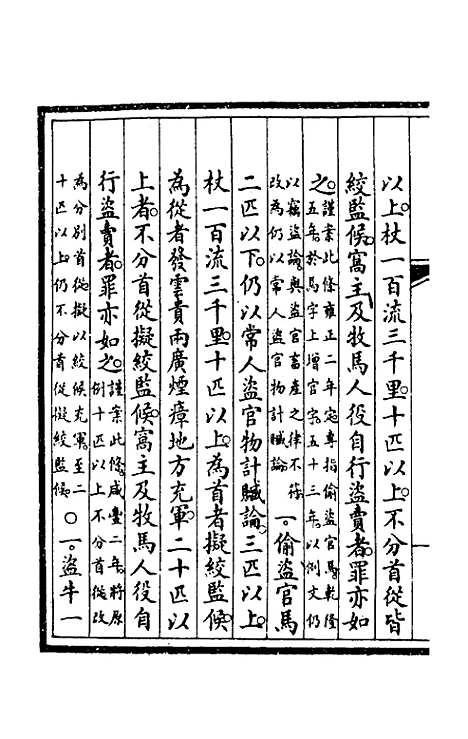 以上。杖一百流三千里。十匹以上。不分首從皆
絞監候。窩主及牧馬人役自行盜賣者。罪亦如
之。謹案此條雍正二年定。專指偷盜官馬。乾隆
五年。於馬字上增官字。五十三年。以例文仍
以竊盜論。與盜官畜產之律不符。
改為仍以常人盜官物計贓論。一。偷盜官馬
二匹以下。仍以常人盜官物計贓論。三匹以上。
杖一百流三千里。十匹以上。為首者擬絞監候。
為從者發雲貴兩廣煙瘴地方充軍。二十匹以
上者。不分首從擬絞監候。窩主及牧馬人役自
行盜賣者。罪亦如之。謹案此條。咸豐二年。將原
例十匹以上不分首從。改
為分別首從。擬以絞候充軍。至二
十匹以上。仍不分首從擬絞監候。○一。盜牛一